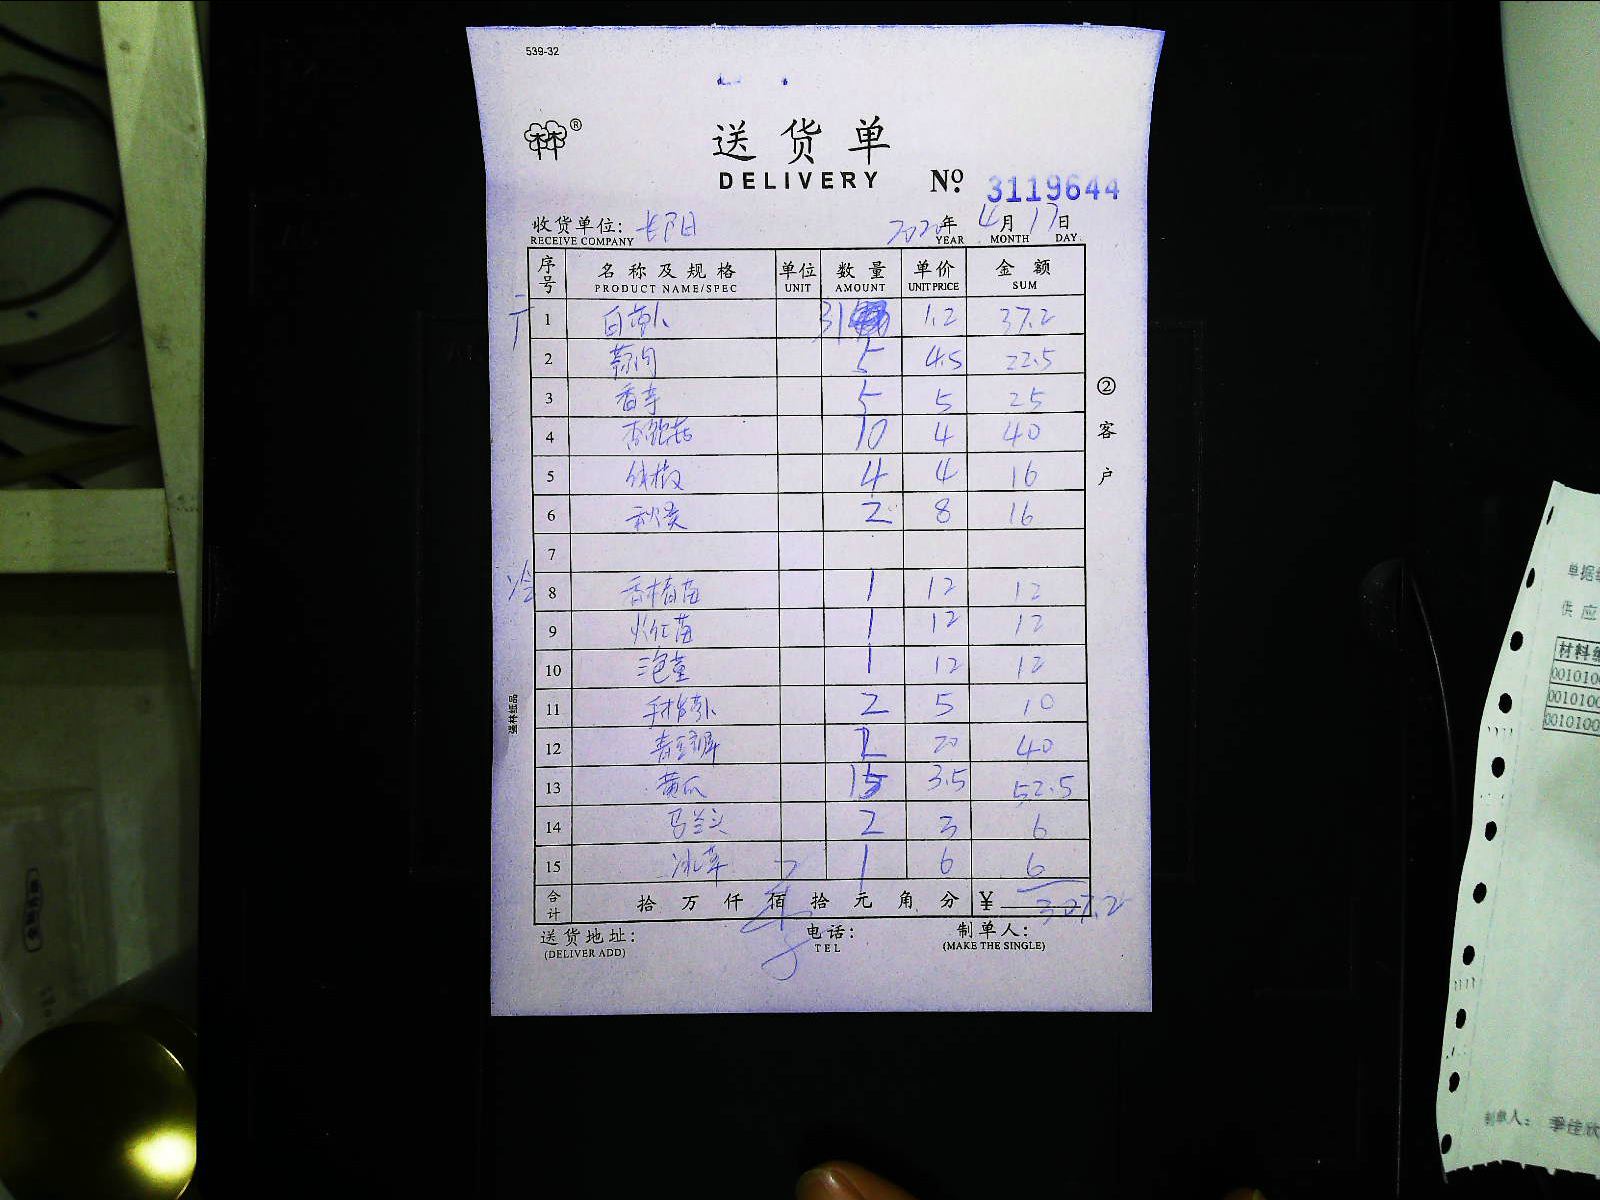 539-32
林林®
送货单
DELIVERY № 3119644
收货单位: 长阳 2020年 4月 17日
RECEIVE COMPANY YEAR MONTH DAY
序号 名称及规格 单位 数量 单价 金额
PRODUCT NAME/SPEC UNIT AMOUNT UNIT PRICE SUM
1 白萝卜 31 1.2 37.2
2 蒜肉 5 4.5 22.5
3 香芋 5 5 25
4 杏鲍菇 10 4 40
5 线椒 4 4 16
6 秋葵 2 8 16
7
冷 8 香椿苗 1 12 12
9 1 12 12
10 1 12 12
11 2 5 10
12 2 20 40
13 黄瓜 15 3.5 52.5
14 马兰头 2 3 6
15 冰草 1 6 6
合计 拾 万 仟 佰 拾 元 角 分 ¥ 307.2
送货地址: 电话: 制单人:
(DELIVER ADD) TEL (MAKE THE SINGLE)
②客户
强林纸品
单据
供应
材料
001010
001010
001010
制单人: 季佳欣